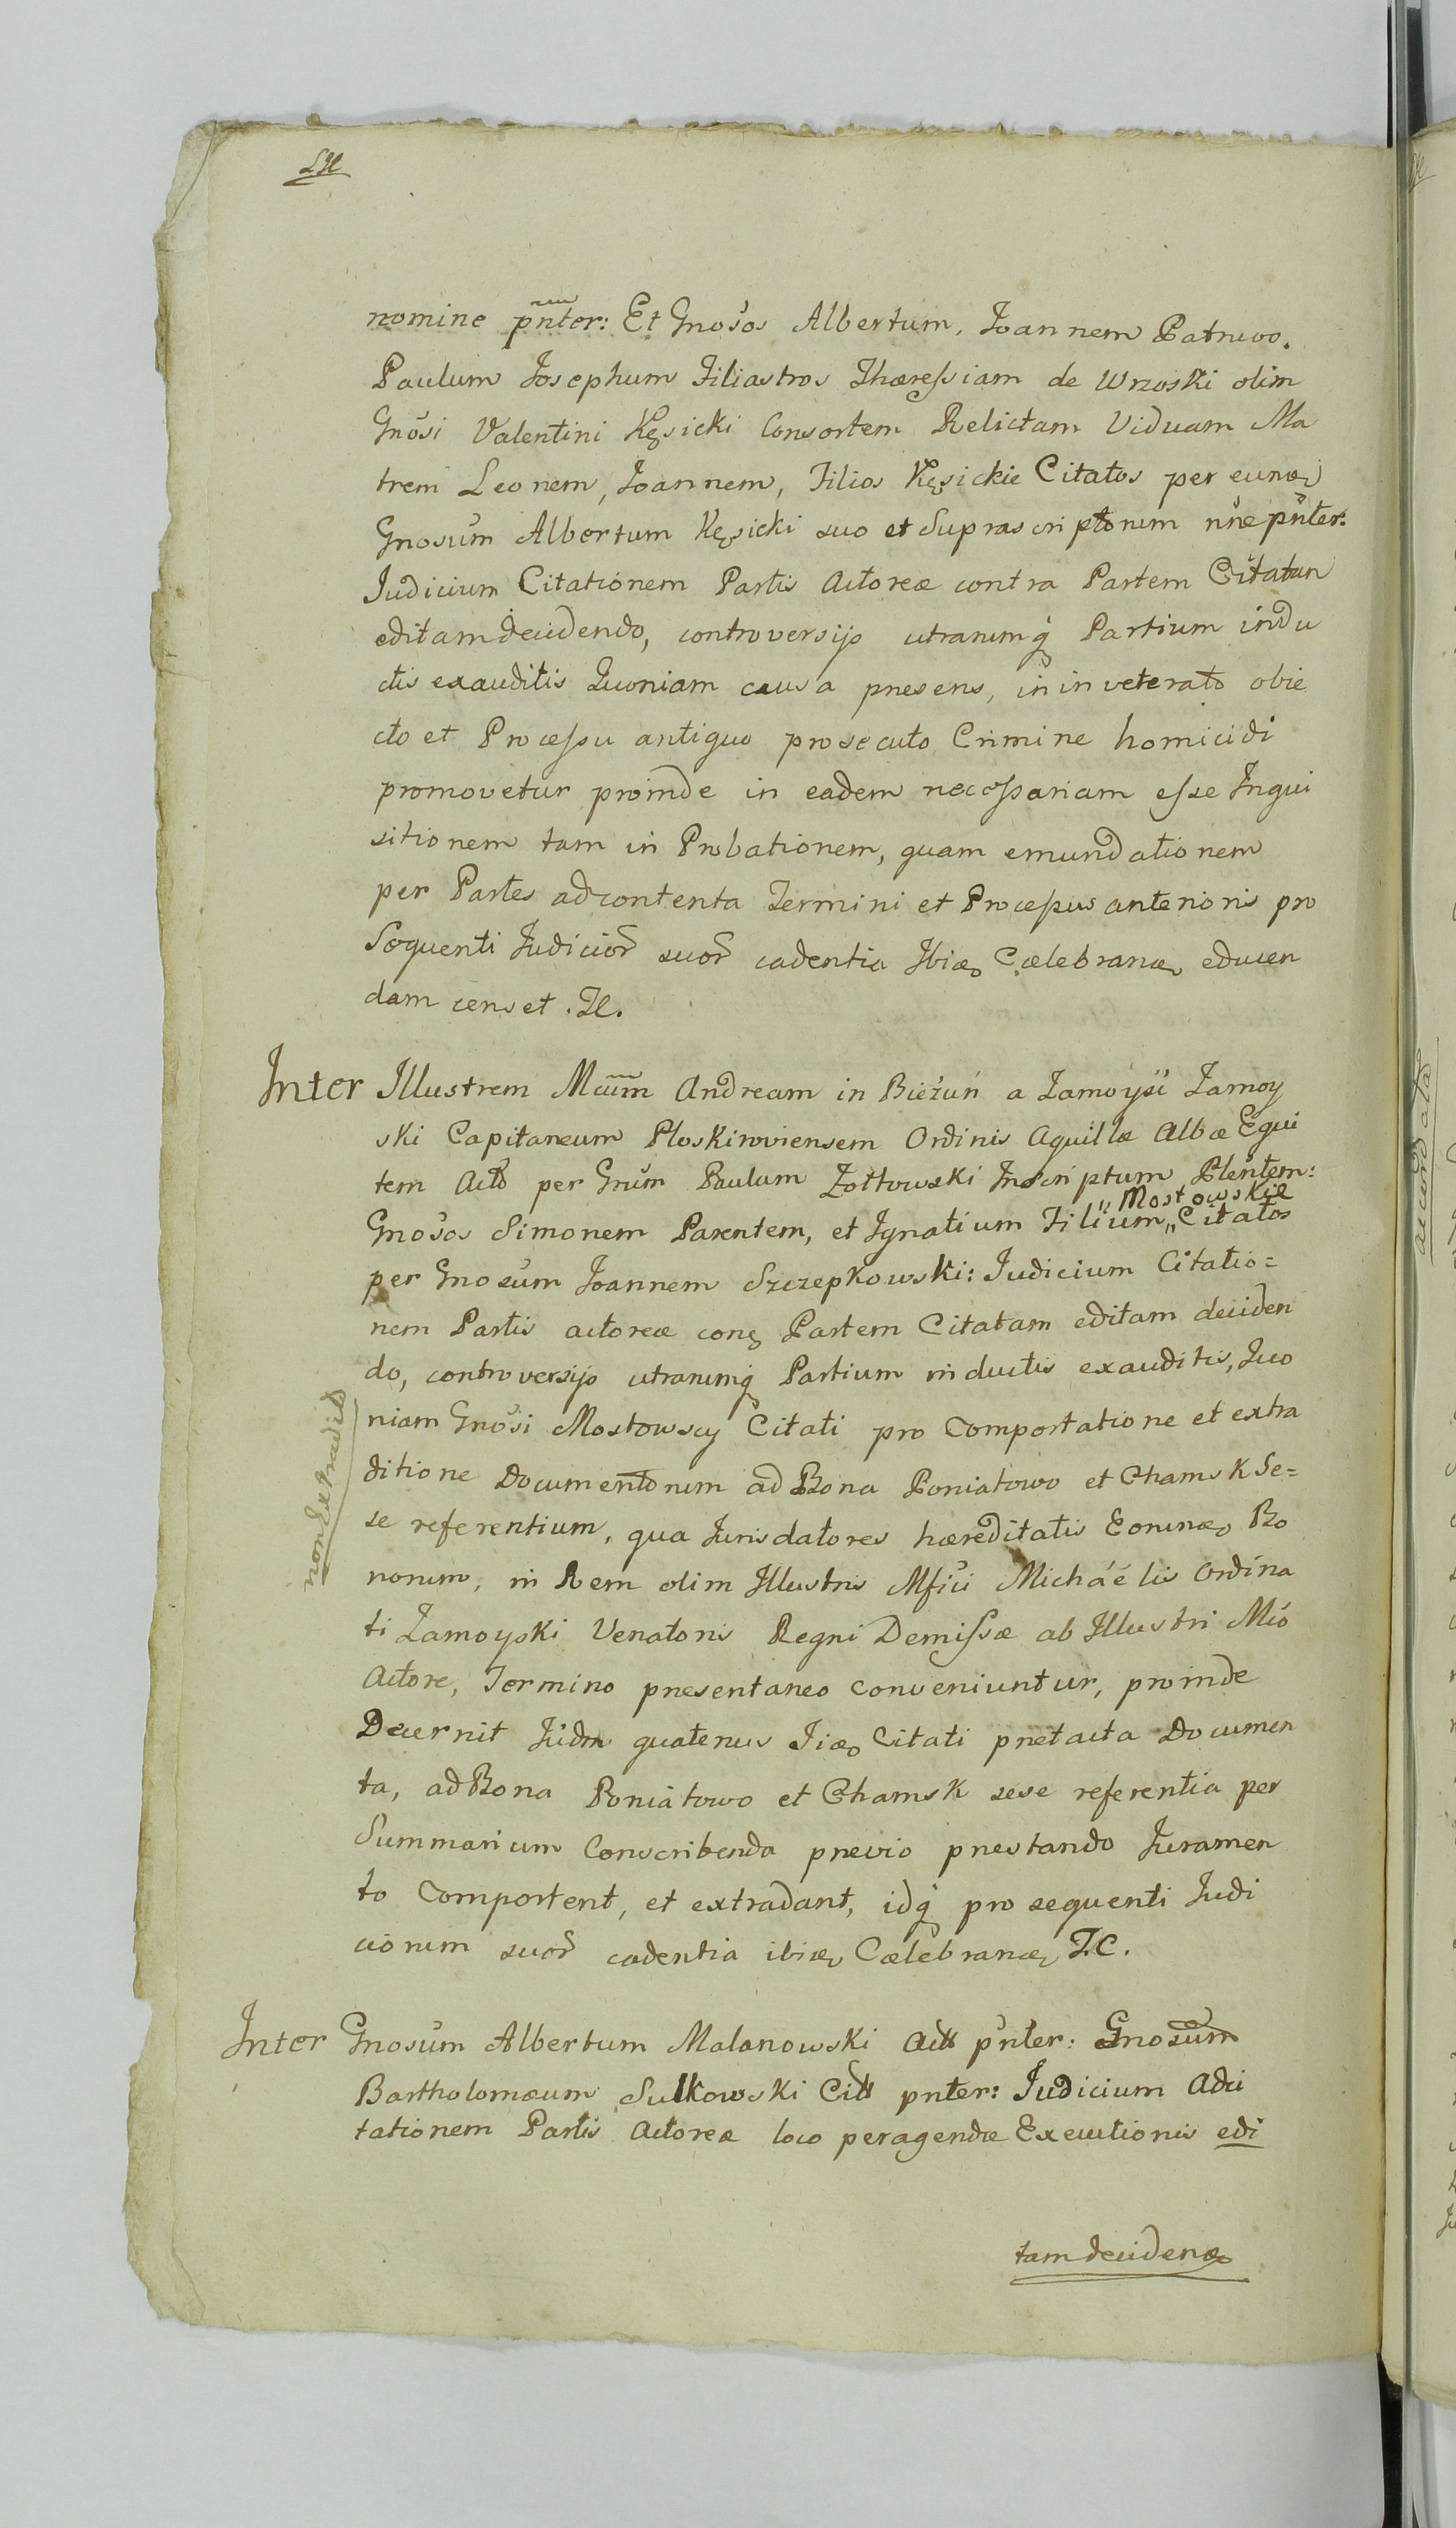 nomine pnter: Et Gnosos Albertum, Joannem Patruos.
Paulum Josephum Filiastros Thæressiam de Wrzoski olim
Gnosi Valentini Kęsicki Consortem Relictam Viduam Ma
trem Leonem, Joannem, Filios Kęsickie Citatos per eund
Gnosum Albertum Kęsicki suo et Suprascriptorum nne pnter:
Judicium Citationem Partis Actoreæ contra Partem Citatam
editam decidendo, controversijs utrarumq Partium indu
ctis exauditis Quoniam causa presens, in inveterato obie
cto et Processu antiquo prosecuto Crimine homicidi
promovetur proinde in eadem necessariam esse Inqui
sitionem tam in Probationem, quam emundationem
per Partes ad contenta Termini et Processus anterioris pro
Sequenti Judicior suor cadentia Ibid Cælebrand educen
dam censet. T.C.
Inter Illustrem Mcum Andream in Bieżuń a Zamoyście Zamoy
ski Capitaneum Ploskiroviensem Ordinis Aquillæ Albæ Equi
tem Actt per Grum Paulum Żołtowski Inscriptum Plentem:
Gnosos Simonem Parentem, et Ignatium Filium „ Mostowskie „ Citatos
per Gnosum Joannem Szczepkowski: Judicium Citatio=
nem Partis actoreæ con Partem Citatam editam deciden
do, controversijs utrarumq Partium inductis exauditis, Quo
niam Gnosi Mostowscy Citati pro Comportatione et extra
ditione Documentorum ad Bona Poniatowo et Chamsk Se=
se referentium, qua Jurisdatores hæreditatis Eorund Bo
norum, in Rem olim Illustris Mfici Michaélis Ordina
ti Zamoyski Venatoris Regni Demissæ ab Illustri Mco
Actore, Termino presentaneo conveniuntur, proinde
Decernit Judm quatenus Iid Citati pretacta Documen
ta, ad Bona Poniatowo et Chamsk sese referentia per
Summarium Conscribenda previo prestando Juramen
to Comportent, et extradant, idq pro sequenti Judi
ciorum suor cadentia ibid Cælebrand T.C.
non Extradit
Inter Gnosum Albertum Malanowski Actt pnter: Gnosum
Bartholomæum Sulkowski Citt pnter: Judicium Adci
tationem Partis Actoreæ loco peragendæ Executionis edi
tam decidend